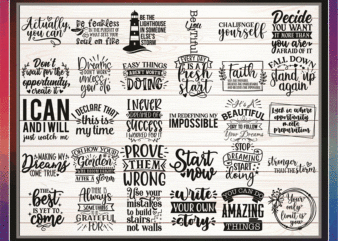 Actually,
you can
Be fearless
in the pursuit
of what sets your
soul on fire
BE THE
LIGHTHOUSE
IN SOMEONE
ELSE'S
STORM
BeYouTiful
CHALLENGE
yourself
Decide
YOU WANT
IT MORE THAN
you are
AFRAID OF IT
Don't
wait for the
opportunity,
create it
Dreams
don't work
unless you
do
EASY THINGS
AREN'T WORTH
DOING
EVERY DAY
IS A
fresh
start
Faith
FALL DOWN
stand up
again
I CAN
AND I WILL
just watch me
DECLARE THAT
this is
my time
I NEVER
DREAMED OF
success
I WORKED FOR IT
I'M REDEFINING MY
IMPOSSIBLE
BEAUTIFUL
DAY TO FOLLOW
Your Dreams
Luck is where
opportunity
meets
preparation
MAKING MY
Dreams
COME TRUE
GROW YOUR
Garden
PROVE
THEM
WRONG
Start
now
STOP
DREAMING
START
doing
stronger
than the storm
The
best
IS YET TO
COME
There is
Always
Something
to be
GRATEFUL
FOR
Use your
mistakes
to build
stairs
not walls
write
YOUR OWN
story
YOU CAN DO
AMAZING
THINGS
Your only
limit is
you